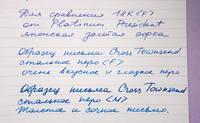 Для сравнения 18K <F>
от Platinum President
японская золотая форка
Образец письма Cross Townsend
стальное перо <F>
очень вкусное и гладкое перо
Образец письма Cross Townsend
стальное перо <M>
Толстое и сочное письмо.